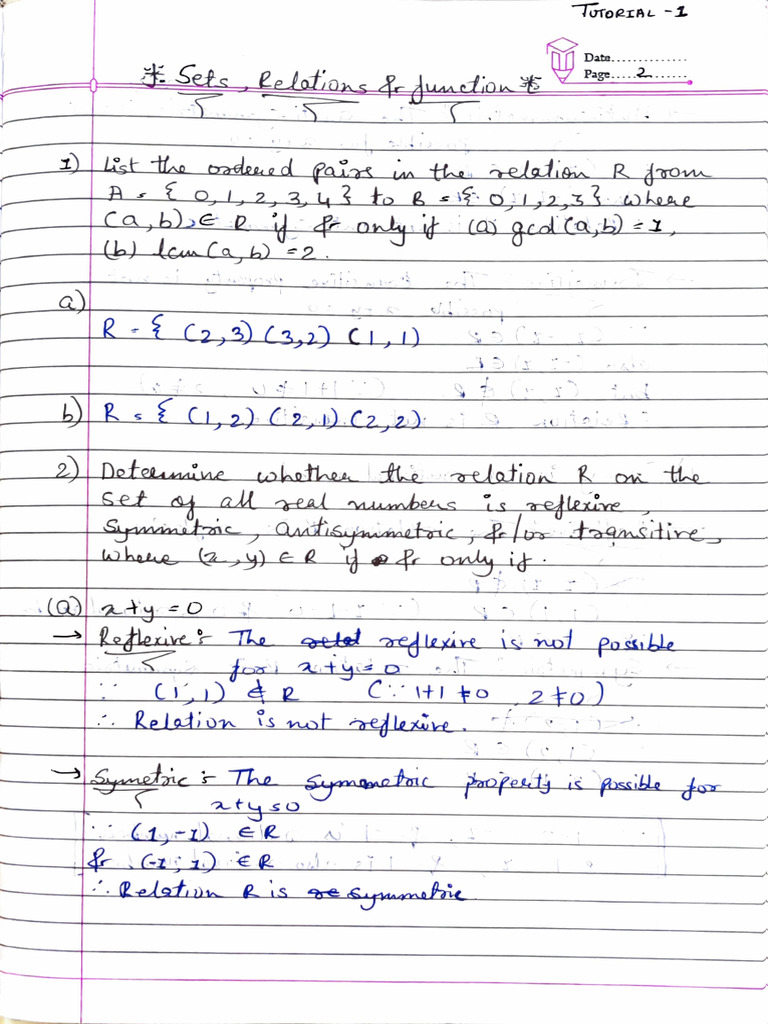 TUTORIAL -1
Date..............
Page.....2.......
* Sets, Relations & function *
1) List the ordered pairs in the relation R from
A = { 0,1,2,3,4} to B = { 0,1,2,3} where
(a,b) ∈ R if & only if (a) gcd(a,b) = 1,
(b) lcm(a,b) = 2.
a)
R = { (2,3) (3,2) (1,1)
b) R = { (1,2) (2,1) (2,2)
2) Determine whether the relation R on the
set of all real numbers is reflexive,
Symmetric, antisymmetric, &/or transitive,
where (x,y) ∈ R if & only if.
(a) x+y = 0
→ Reflexive : The reflexive is not possible
for x+y=0
∵ (1,1) ∉ R (∵ 1+1 ≠0 2≠0)
∴ Relation is not reflexive.
→ Symetric : The Symmetric property is possible for
x+y=0
∵ (1,-1) ∈ R
& (-1,1) ∈ R
∴ Relation R is symmetric